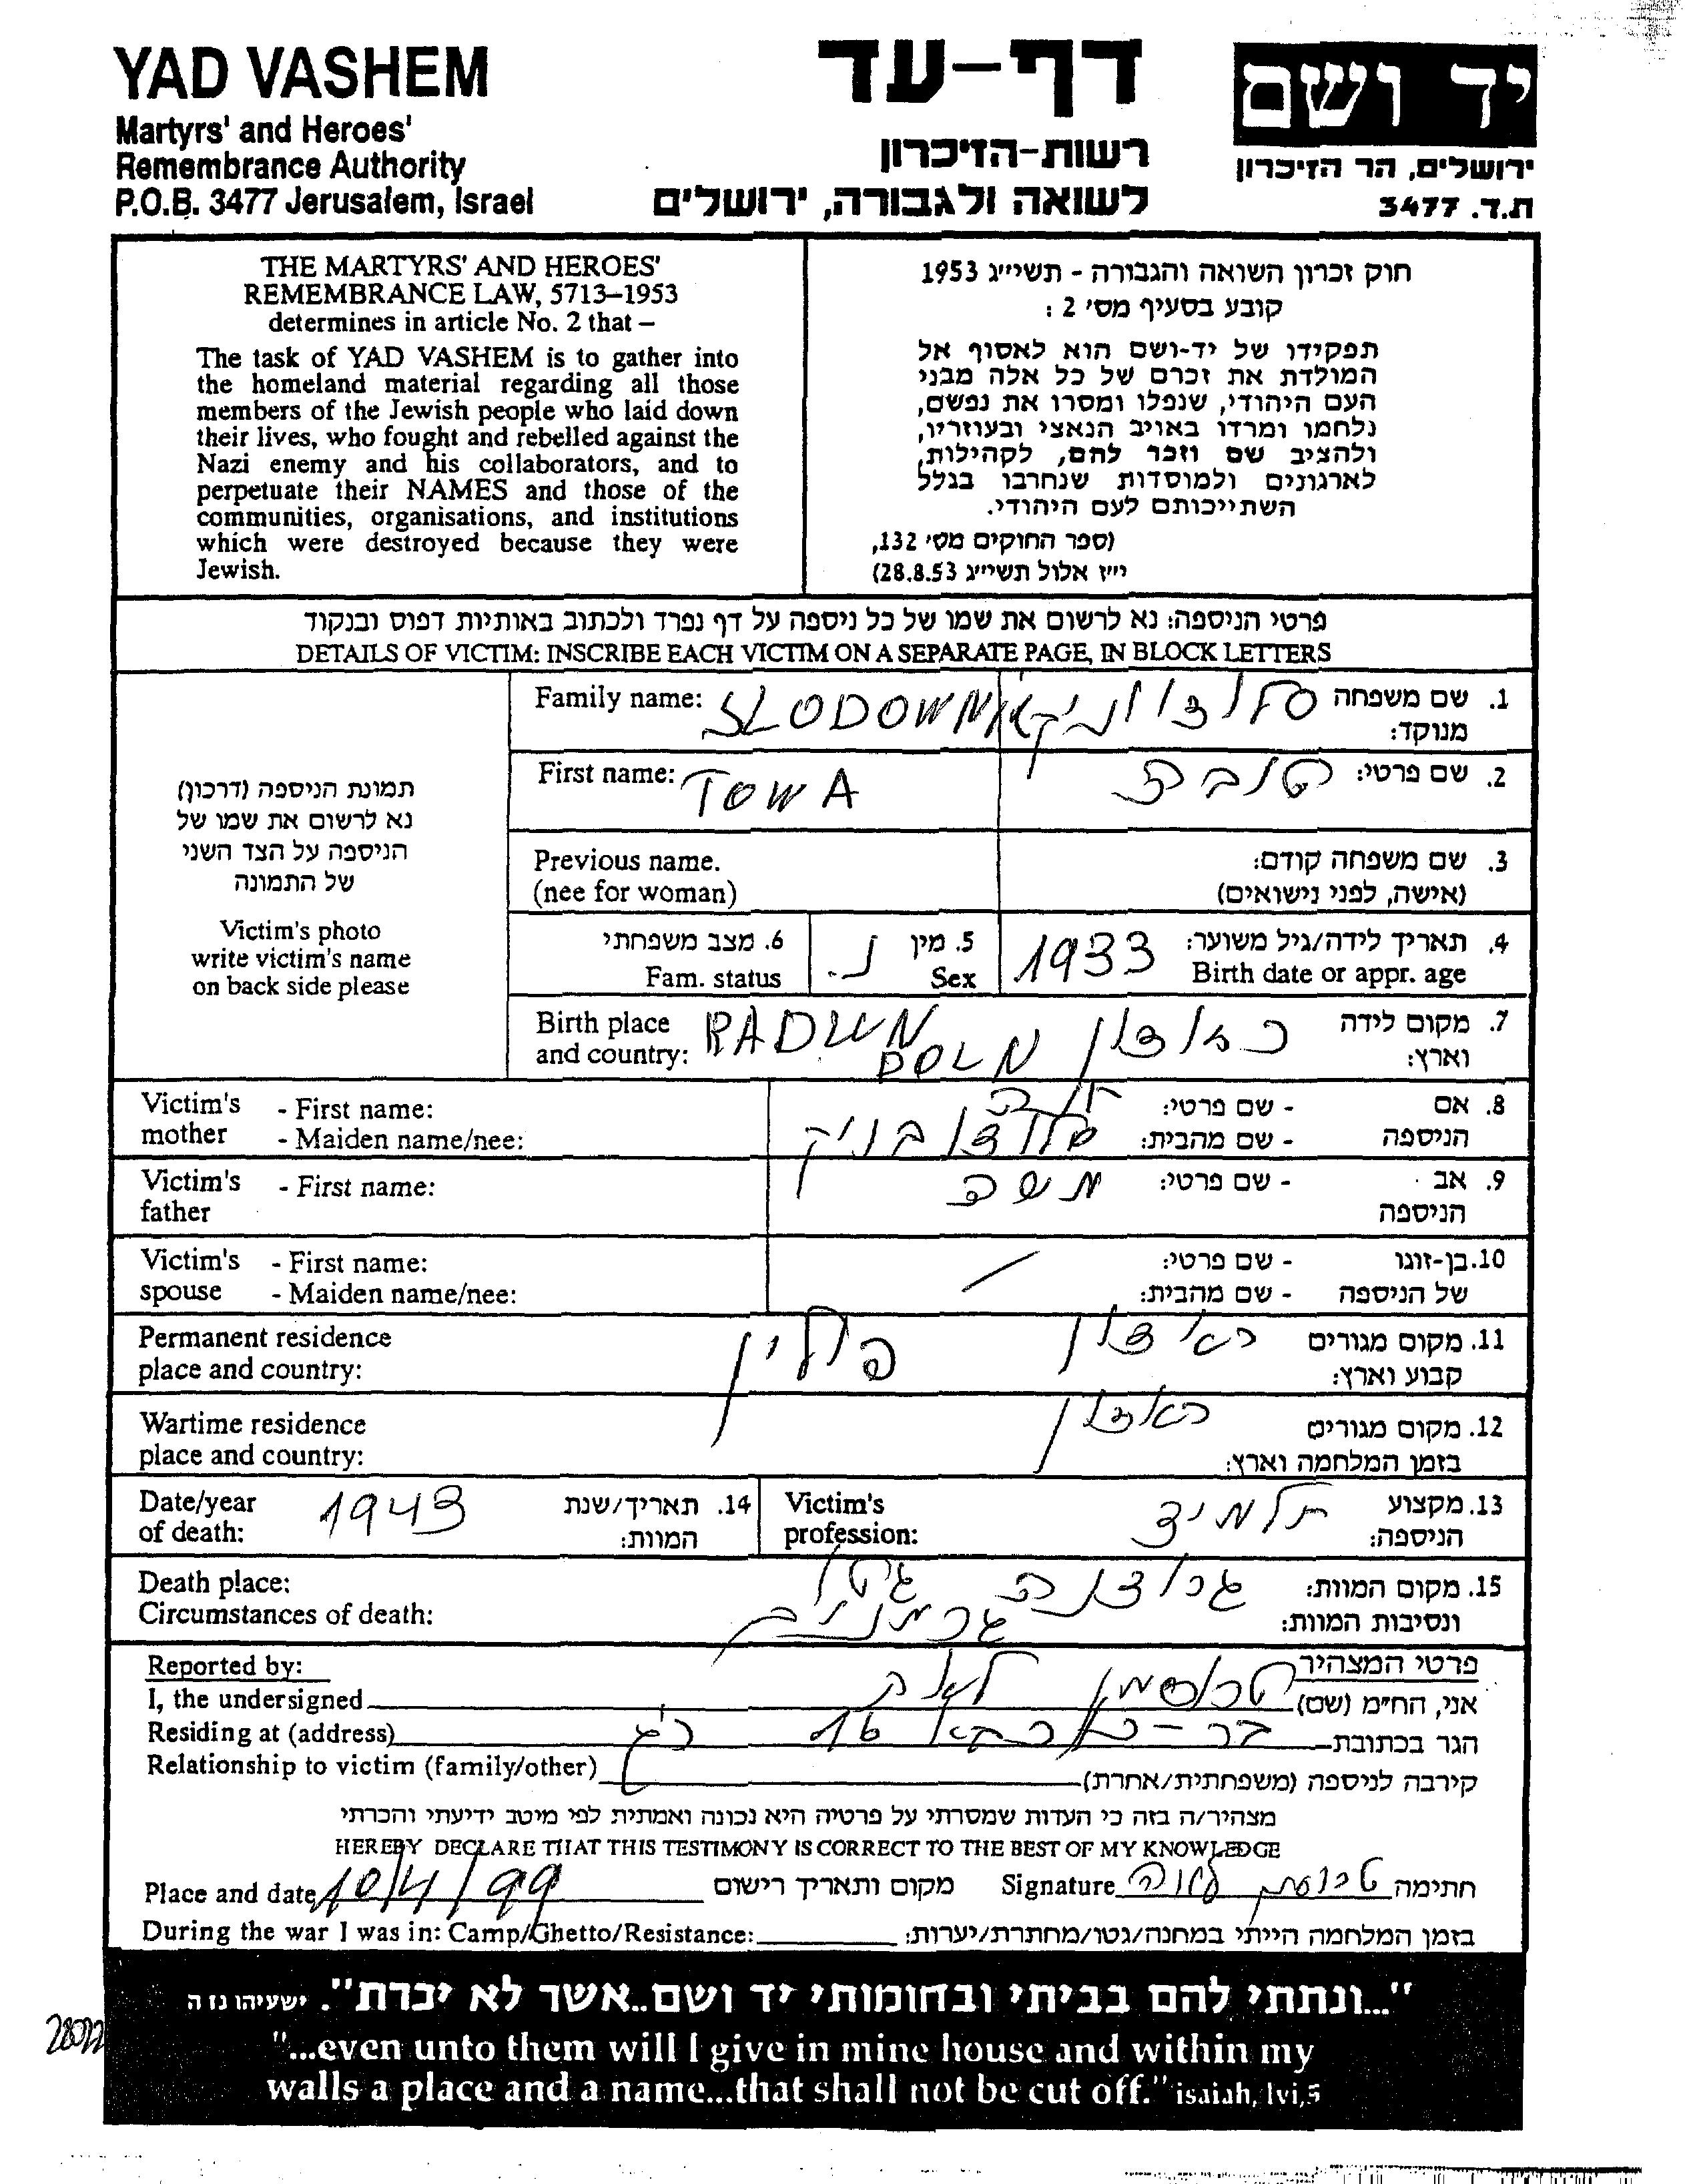 YAD VASHEM
Martyrs' and Heroes'
Remembrance Authority
P.O.B. 3477 Jerusalem, Israel
דף-עד
רשות-הזיכרון
לשואה ולגבורה, ירושלים
יד ושם
ירושלים, הר הזיכרון
ת.ד. 3477
THE MARTYRS' AND HEROES'
REMEMBRANCE LAW, 5713–1953
determines in article No. 2 that –
The task of YAD VASHEM is to gather into
the homeland material regarding all those
members of the Jewish people who laid down
their lives, who fought and rebelled against the
Nazi enemy and his collaborators, and to
perpetuate their NAMES and those of the
communities, organisations, and institutions
which were destroyed because they were
Jewish.
חוק זכרון השואה והגבורה - תשי״ג 1953
קובע בסעיף מס׳ 2 :
תפקידו של יד-ושם הוא לאסוף אל
המולדת את זכרם של כל אלה מבני
העם היהודי, שנפלו ומסרו את נפשם,
נלחמו ומרדו באויב הנאצי ובעוזריו,
ולהציב שם וזכר להם, לקהילות,
לארגונים ולמוסדות שנחרבו בגלל
השתייכותם לעם היהודי.
(ספר החוקים מס׳ 132,
י״ז אלול תשי״ג 28.8.53)
פרטי הניספה: נא לרשום את שמו של כל ניספה על דף נפרד ולכתוב באותיות דפוס ובנקוד
DETAILS OF VICTIM: INSCRIBE EACH VICTIM ON A SEPARATE PAGE, IN BLOCK LETTERS
תמונת הניספה (דרכון)
נא לרשום את שמו של
הניספה על הצד השני
של התמונה
Victim's photo
write victim's name
on back side please
Family name: SLODOWNIK סלודובניק 1. שם משפחה
מנוקד:
First name: TOWA טובה 2. שם פרטי:
Previous name. 3. שם משפחה קודם:
(nee for woman) (אישה, לפני נישואים)
6. מצב משפחתי נ. 5. מין 1933 4. תאריך לידה/גיל משוער:
Fam. status Sex Birth date or appr. age
Birth place RADUN ראדון 7. מקום לידה
and country: POLN וארץ:
Victim's - First name: - שם פרטי: 8. אם
mother - Maiden name/nee: סלודובניק - שם מהבית: הניספה
Victim's - First name: משה - שם פרטי: 9. אב
father הניספה
Victim's - First name: - שם פרטי: 10. בן-זוגו
spouse - Maiden name/nee: - שם מהבית: של הניספה
Permanent residence פולין ראדון 11. מקום מגורים
place and country: קבוע וארץ:
Wartime residence ראדון 12. מקום מגורים
place and country: בזמן המלחמה וארץ:
Date/year 1943 14. תאריך/שנת Victim's תלמיד 13. מקצוע
of death: המוות: profession: הניספה:
Death place: גרודנה גיטו 15. מקום המוות:
Circumstances of death: ונסיבות המוות:
Reported by: פרטי המצהיר
I, the undersigned אני, הח״מ (שם)
Residing at (address) 16 הגר בכתובת
Relationship to victim (family/other) קירבה לניספה (משפחתית/אחרת)
מצהיר/ה בזה כי העדות שמסרתי על פרטיה היא נכונה ואמתית לפי מיטב ידיעתי והכרתי
HEREBY DECLARE THAT THIS TESTIMONY IS CORRECT TO THE BEST OF MY KNOWLEDGE
Place and date 10/4/99 מקום ותאריך רישום Signature חתימה
During the war I was in: Camp/Ghetto/Resistance: בזמן המלחמה הייתי במחנה/גטו/מחתרת/יערות:
"...ונתתי להם בביתי ובחומותי יד ושם..אשר לא יכרת". ישעיהו נו ה
"...even unto them will I give in mine house and within my
walls a place and a name...that shall not be cut off." isaiah, lvi,5